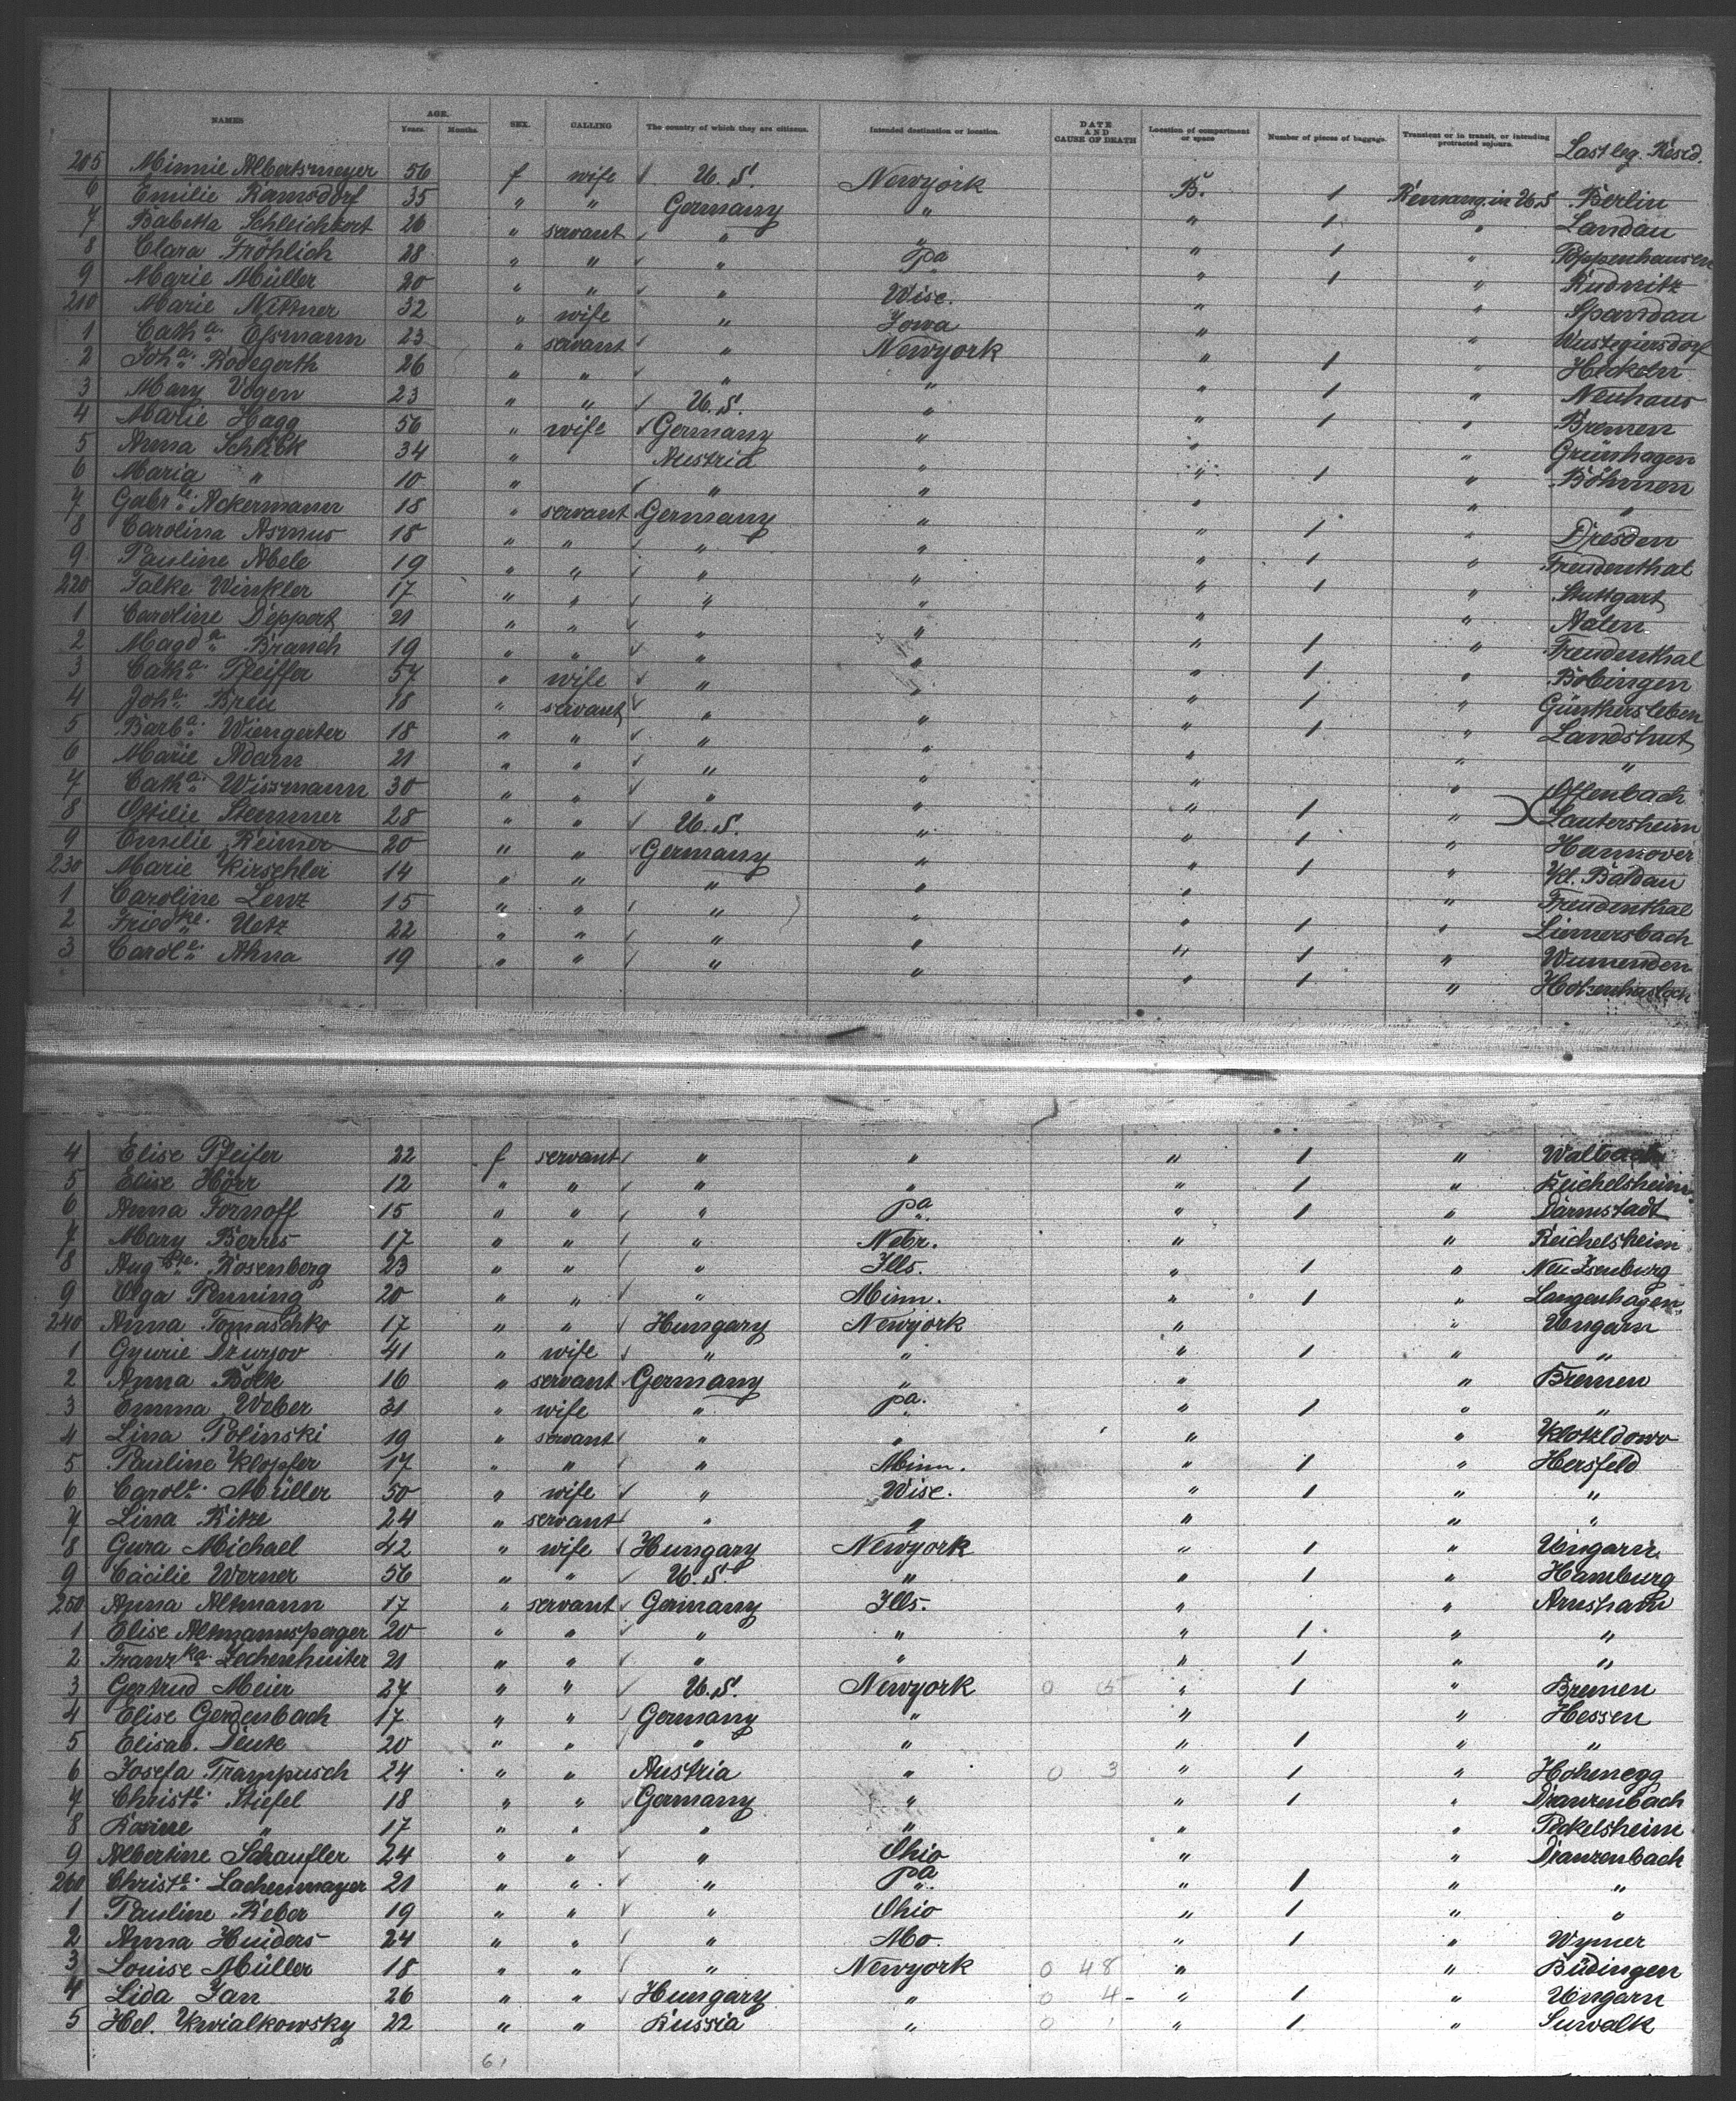 NAMES AGE. Years. Months. SEX. CALLING The country of which they are citizens. Intended destination or location. DATE AND CAUSE OF DEATH Location of compartment or space Number of pieces of baggage. Transient or in transit, or intending protracted sojourn. Last leg. Resid.
205 Minnie Albertsmeyer 56 f wife U.S. Newyork B. 1 Remang. in U.S. Berlin
6 Emilie Ramsdorf 35 " " Germany " " 1 " Landau
7 Babetta Schleichkort 26 " servant " " " 1 " Poppenhausen
8 Clara Fröhlich 28 " " " Pa " 1 " Rudnitz
9 Marie Müller 20 " " " Wisc. " " Spandau
210 Marie Nittner 32 " wife " Iowa " " Wustegiersdorf
1 Cath.a Essmann 23 " servant " Newyork " 1 " Heckeln
2 Joh.a Rodegerth 26 " " " " " 1 " Neuhaus
3 Mary Vogen 23 " " U.S. " " 1 " Bremen
4 Marie Hagg 56 " wife Germany " " " Grünhagen
5 Anna Schlick 34 " Austria " " 1 " Böhmen
6 Maria " 10 " " " " "
7 Gabr.le Ackermann 18 " servant Germany " " 1 " Dresden
8 Carolina Asmus 18 " " " " " 1 " Freudenthal
9 Pauline Abele 19 " " " " " 1 " Stuttgart
220 Talke Winkler 17 " " " " " " Aalen
1 Caroline Deppert 21 " " " " " 1 " Freudenthal
2 Magd.a Branch 19 " " " " " 1 " Bobingen
3 Cath.a Pfeiffer 57 " wife " " " 1 " Günthersleben
4 Joh.a Breu 18 " servant " " " 1 " Landshut
5 Barb.a Wiengerter 18 " " " " " " "
6 Marie Adam 21 " " " " " " Offenbach
7 Cath.a Wissmann 30 " " " " " 1 " Lautersheim
8 Ottilie Stemmer 28 " " U.S. " " 1 " Hannover
9 Emilie Reimer 20 " " Germany " " 1 " Kl. Baldau
230 Marie Kirschler 14 " " " " " " Freudenthal
1 Caroline Lenz 15 " " " " " 1 " Liemersbach
2 Fried.ke Uetz 22 " " " " " 1 " Wumenden
3 Carol.e Ahna 19 " " " " " 1 " Hohenhaslach
4 Elise Pfeifer 22 f servant " " " 1 "
5 Elise Hörr 12 " " " " " 1 " Reichelsheim
6 Anna Fornoff 15 " " " Pa " 1 " Darmstadt
7 Mary Berres 17 " " " Nebr. " " Reichelsheim
8 Aug.ste Rosenberg 23 " " " Ills. " 1 " Neu Isenburg
9 Olga Penning 20 " " " Minn. " 1 " Langenhagen
240 Anna Tomaschko 17 " " Hungary Newyork " " Ungarn
1 Gyurie Dzurjov 41 " wife " " " 1 " "
2 Anna Bolk 16 " servant Germany " " " Bremen
3 Emma Weber 31 " wife " Pa. " 1 " "
4 Lina Polinski 19 " servant " " " " Klotzldowo
5 Pauline Klopfer 17 " " " Minn. " 1 " Hersfeld
6 Carol.e Müller 50 " wife " Wisc. " 1 " "
7 Lina Ritze 24 " servant " " " " "
8 Gura Michael 42 " wife Hungary Newyork " 1 " Ungarn
9 Cäcilie Werner 56 " " U.S. " " 1 " Hamburg
250 Anna Altmann 17 " servant Germany Ills. " " Arnsham
1 Elise Altmannsperger 20 " " " " " 1 " "
2 Franz.ka Zechenhuiter 21 " " " " " 1 " "
3 Gertrud Meier 27 " " U.S. Newyork " 1 " Bremen
4 Elise Gerdenbach 17 " " Germany " " " Hessen
5 Elisab. Deuse 20 " " " " " 1 " "
6 Josefa Trampusch 24 " " Austria " 0 3 " 1 " Hohenegg
7 Christ.e Stiefel 18 " " Germany " " 1 " Dranzenbach
8 Rosine " 17 " " " " " " Pickelsheim
9 Albertine Schaufler 24 " " " Ohio " " Dranzenbach
260 Christ.e Lachenmayer 21 " " " Pa " 1 " "
1 Pauline Reber 19 " " " Ohio " 1 " "
2 Anna Huiders 24 " " " Mo. " 1 " Wymer
3 Louise Müller 18 " " " Newyork 0 48 " " Büdingen
4 Lida Jan 26 " " Hungary " 0 4- " 1 " Ungarn
5 Hel. Kwialkowsky 22 " " Russia " 0 " 1 " Suwalk
61